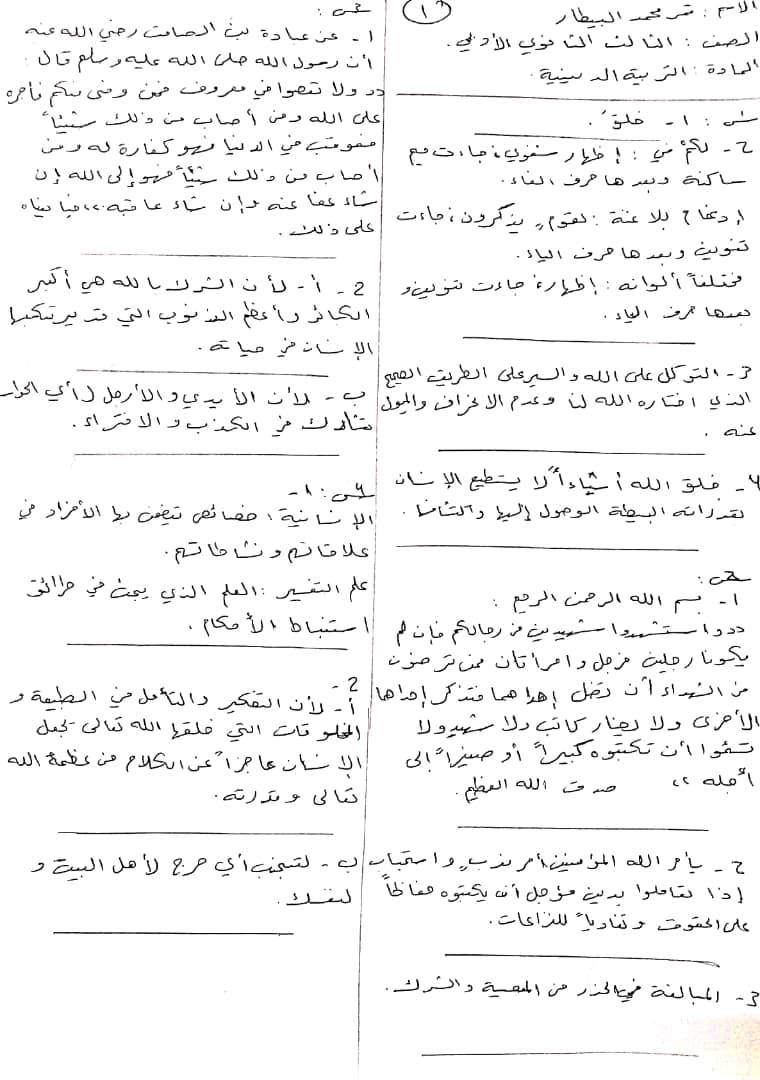 الاسم : تمر محمد البيطار
(١)
الصف : الثالث الثانوي الأدبي.
المادة : التربية الدينية.
س١ : ١- خلقَ.
٢- لكم في : إظهار شفوي، جاءت ميم
ساكنة وبعدها حرف الفاء.
إدغام بلا غنة : لقومٍ يذكرون، جاءت
تنوين وبعدها حرف الياء.
مختلفاً ألوانه : إظهار، جاءت تنوين و
بعدها حرف الياء.
٣- التوكل على الله والسير على الطريق الصحيح
الذي اختاره الله لنا وعدم الانحراف والميول
عنه .
٤- خلق الله أشياءً لا يستطيع الإنسان
بقدراته البسيطة الوصول إليها واكتشافها .
س٢:
١- بسم الله الرحمن الرحيم :
"واستشهدوا شهيدين من رجالكم فإن لم
يكونا رجلين فرجل وامرأتان ممن ترضون
من الشهداء أن تضل إحداهما فتذكر إحداها
الأخرى ولا يضار كاتب ولا شهيد ولا
تسئموا أن تكتبوه كبيراً أو صغيراً إلى
أجله " صدق الله العظيم.
٢- يأمر الله المؤمنين أمر ندبٍ واستحباب
إذا تعاملوا بدين مؤجل أن يكتبوه حفاظاً
على الحقوق وتفادياً للنزاعات.
٣- المبالغة في الحذر من المعصية والشرك.
س٣:
١- عن عبادة بن الصامت رضي الله عنه
أن رسول الله صلى الله عليه وسلم قال :
"ولا تعصوا في معروف فمن وفى منكم فأجره
على الله ومن أصاب من ذلك شيئاً
فعوقب في الدنيا فهو كفارة له ومن
أصاب من ذلك شيئاً فهو إلى الله إن
شاء عفا عنه وإن شاء عاقبه" فبايعناه
على ذلك.
٢- أ- لأن الشرك بالله هي أكبر
الكبائر وأعظم الذنوب التي قد يرتكبها
الإنسان في حياته.
ب- لأن الأيدي والأرجل (أي الجوارح
تشارك في الكذب والافتراء.
س٤: ١-
الإنسانية : خصائص تتصف بها الأفراد في
علاقاتهم ونشاطاتهم.
علم التفسير : العلم الذي يبحث في طرائق
استنباط الأحكام .
٢-
أ- لأن التفكير والتأمل في الطبيعة و
المخلوقات التي خلقها الله تعالى تجعل
الإنسان عاجزاً عن الكلام من عظمة الله
تعالى وقدرته.
ب- لتجنب أي حرج لأهل البيت و
لنفسك.